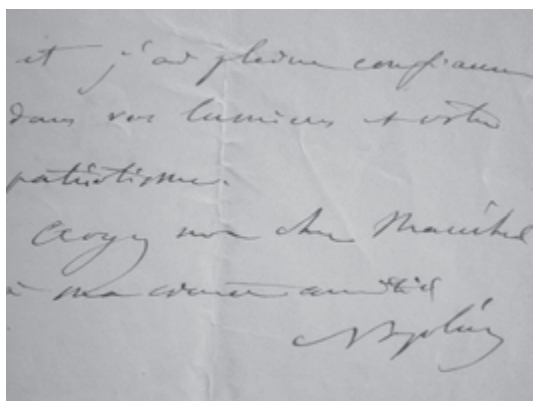 et j'ai pleine confiance
dans vos lumières et votre
patriotisme.
Croyez mon cher Maréchal
à ma sincère amitié
Napoléon